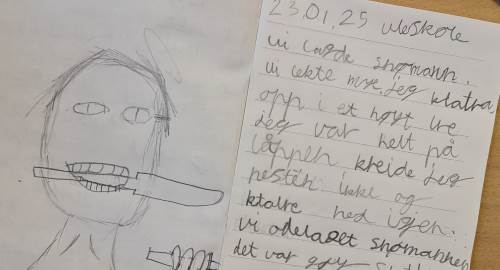 23.01.25 uteskole
vi lagde snømann.
vi lekte mye. jeg klatra
opp i et høyt tre
Jeg var helt på
toppen kreide jeg
nesten ikke og
klatre ned igjen.
vi ødelaget snømannen
det var gøy